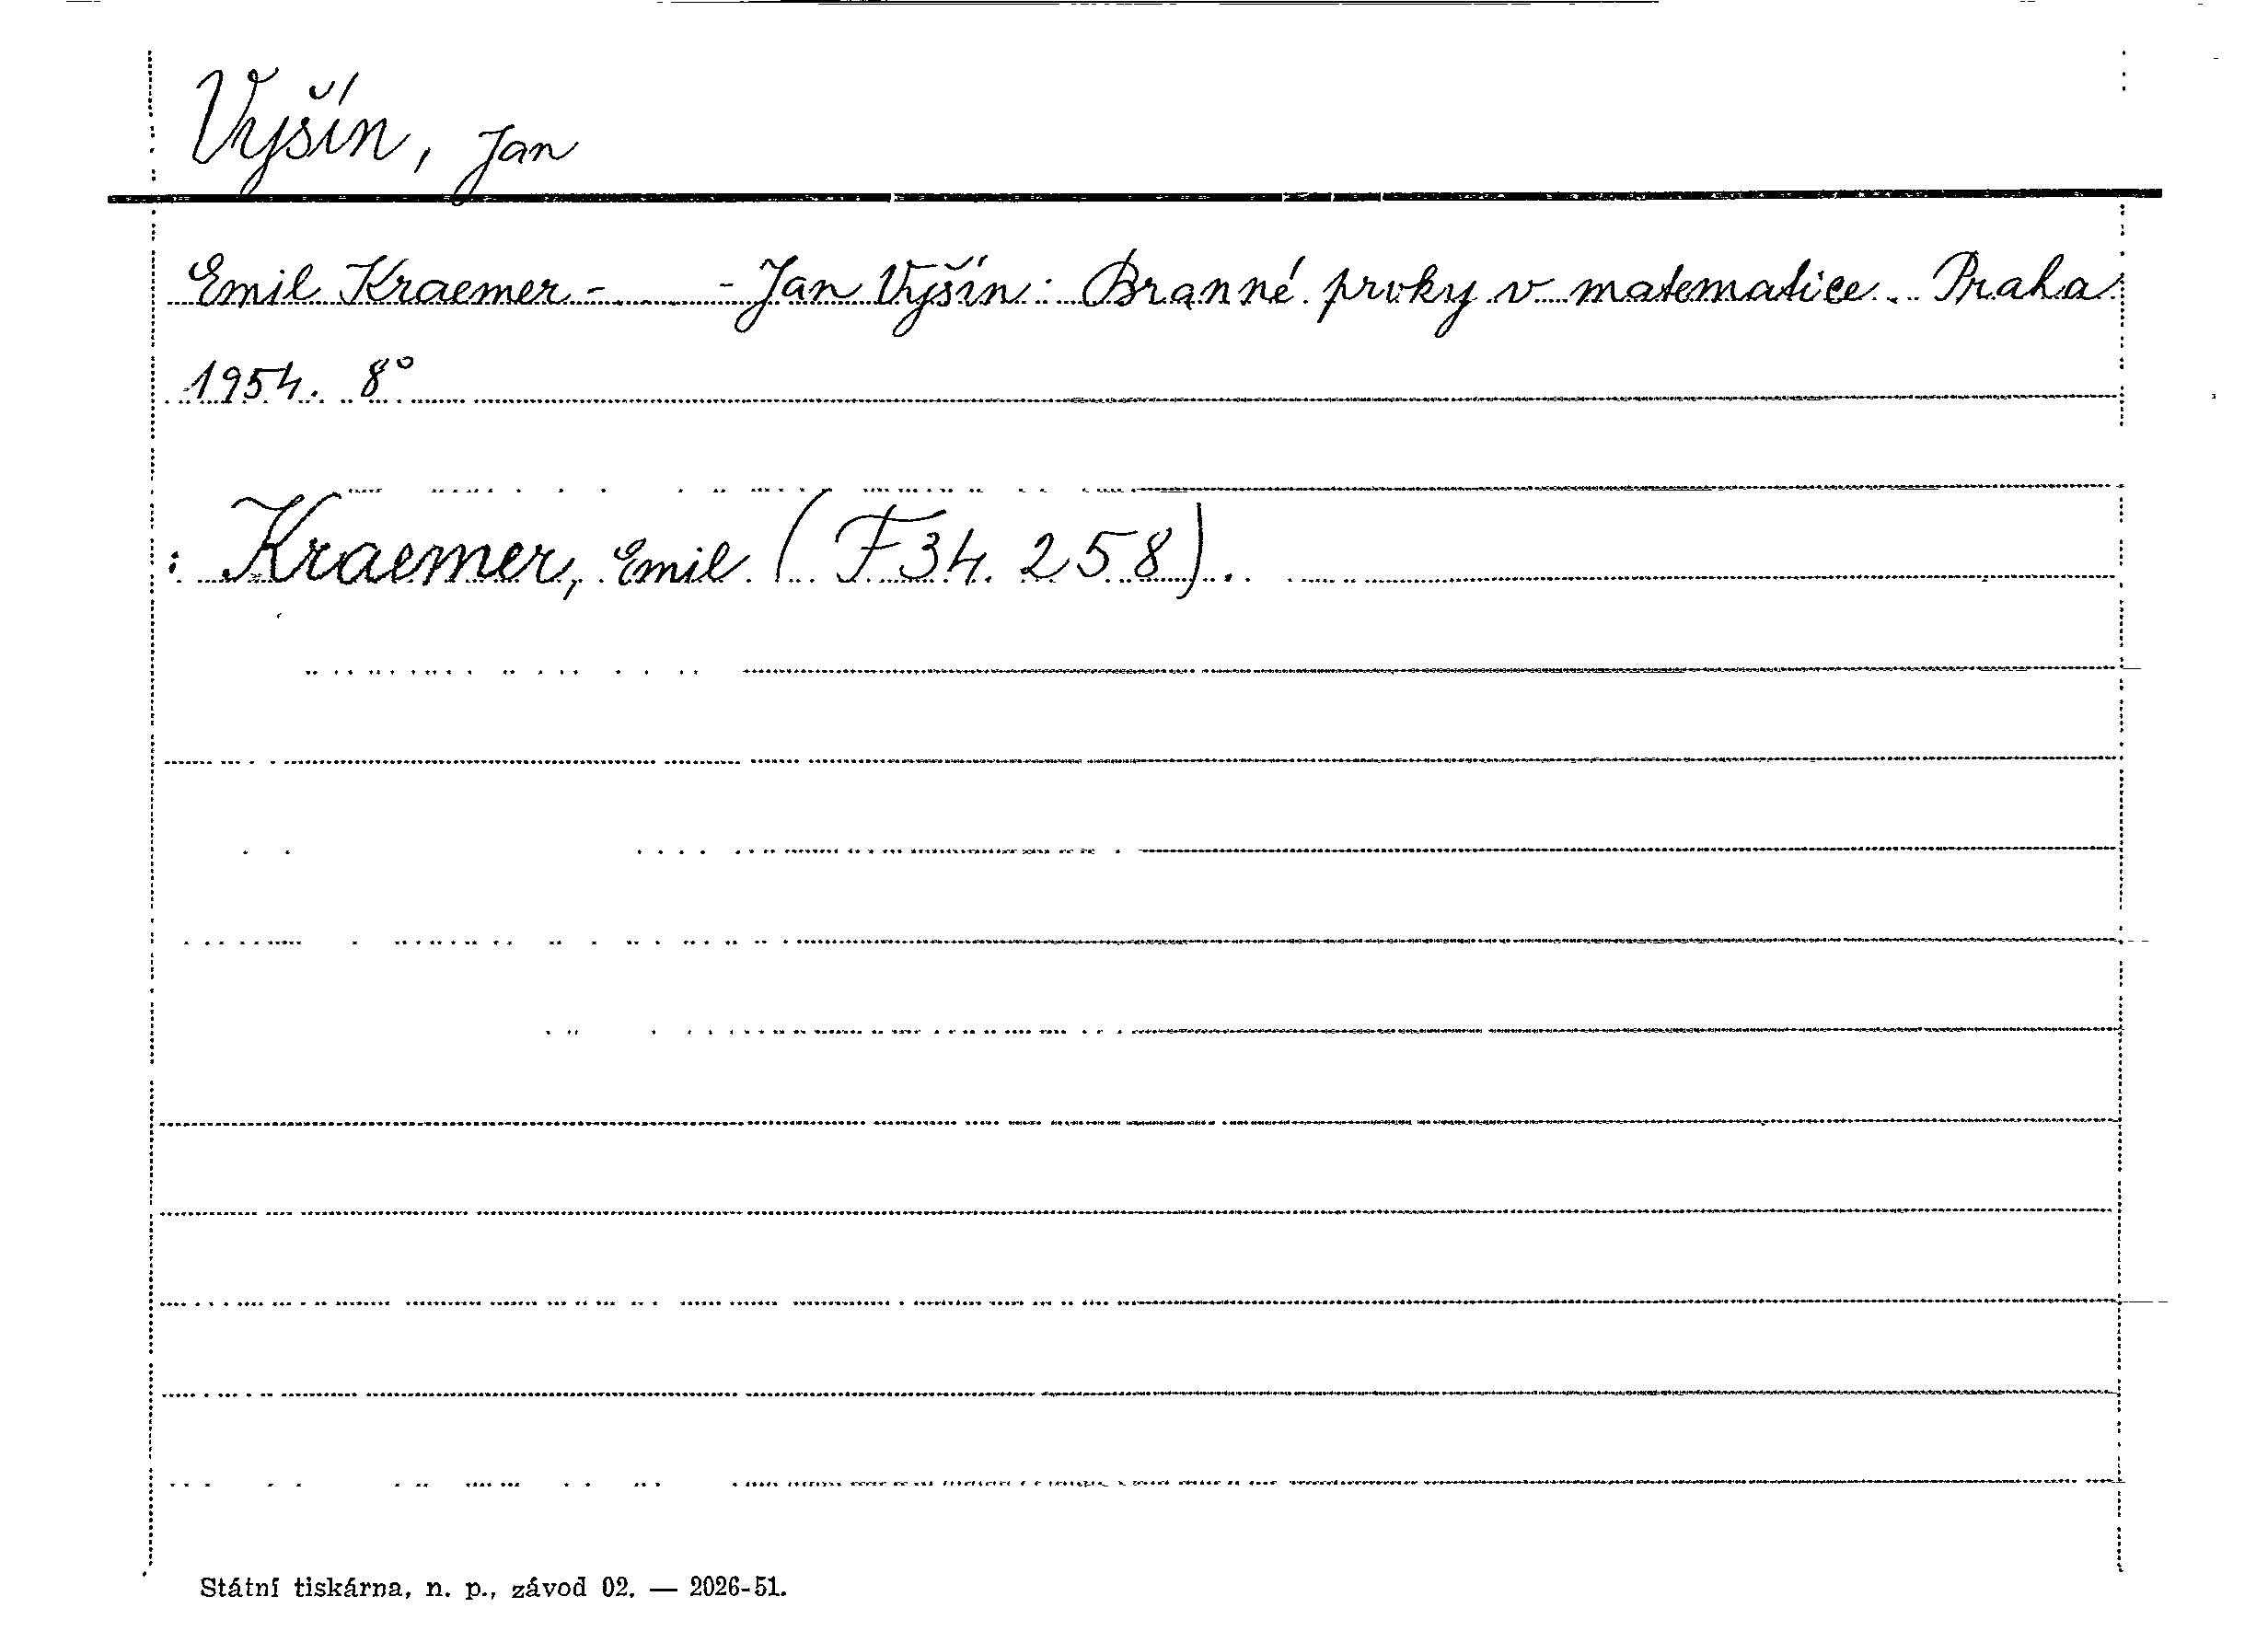 Vyšín, Jan
Emil Kraemer - - Jan Vyšín: Branné prvky v matematice. Praha
1954. 8°
: Kraemer, Emil (F 34.258).
Státní tiskárna, n. p., závod 02. — 2026-51.